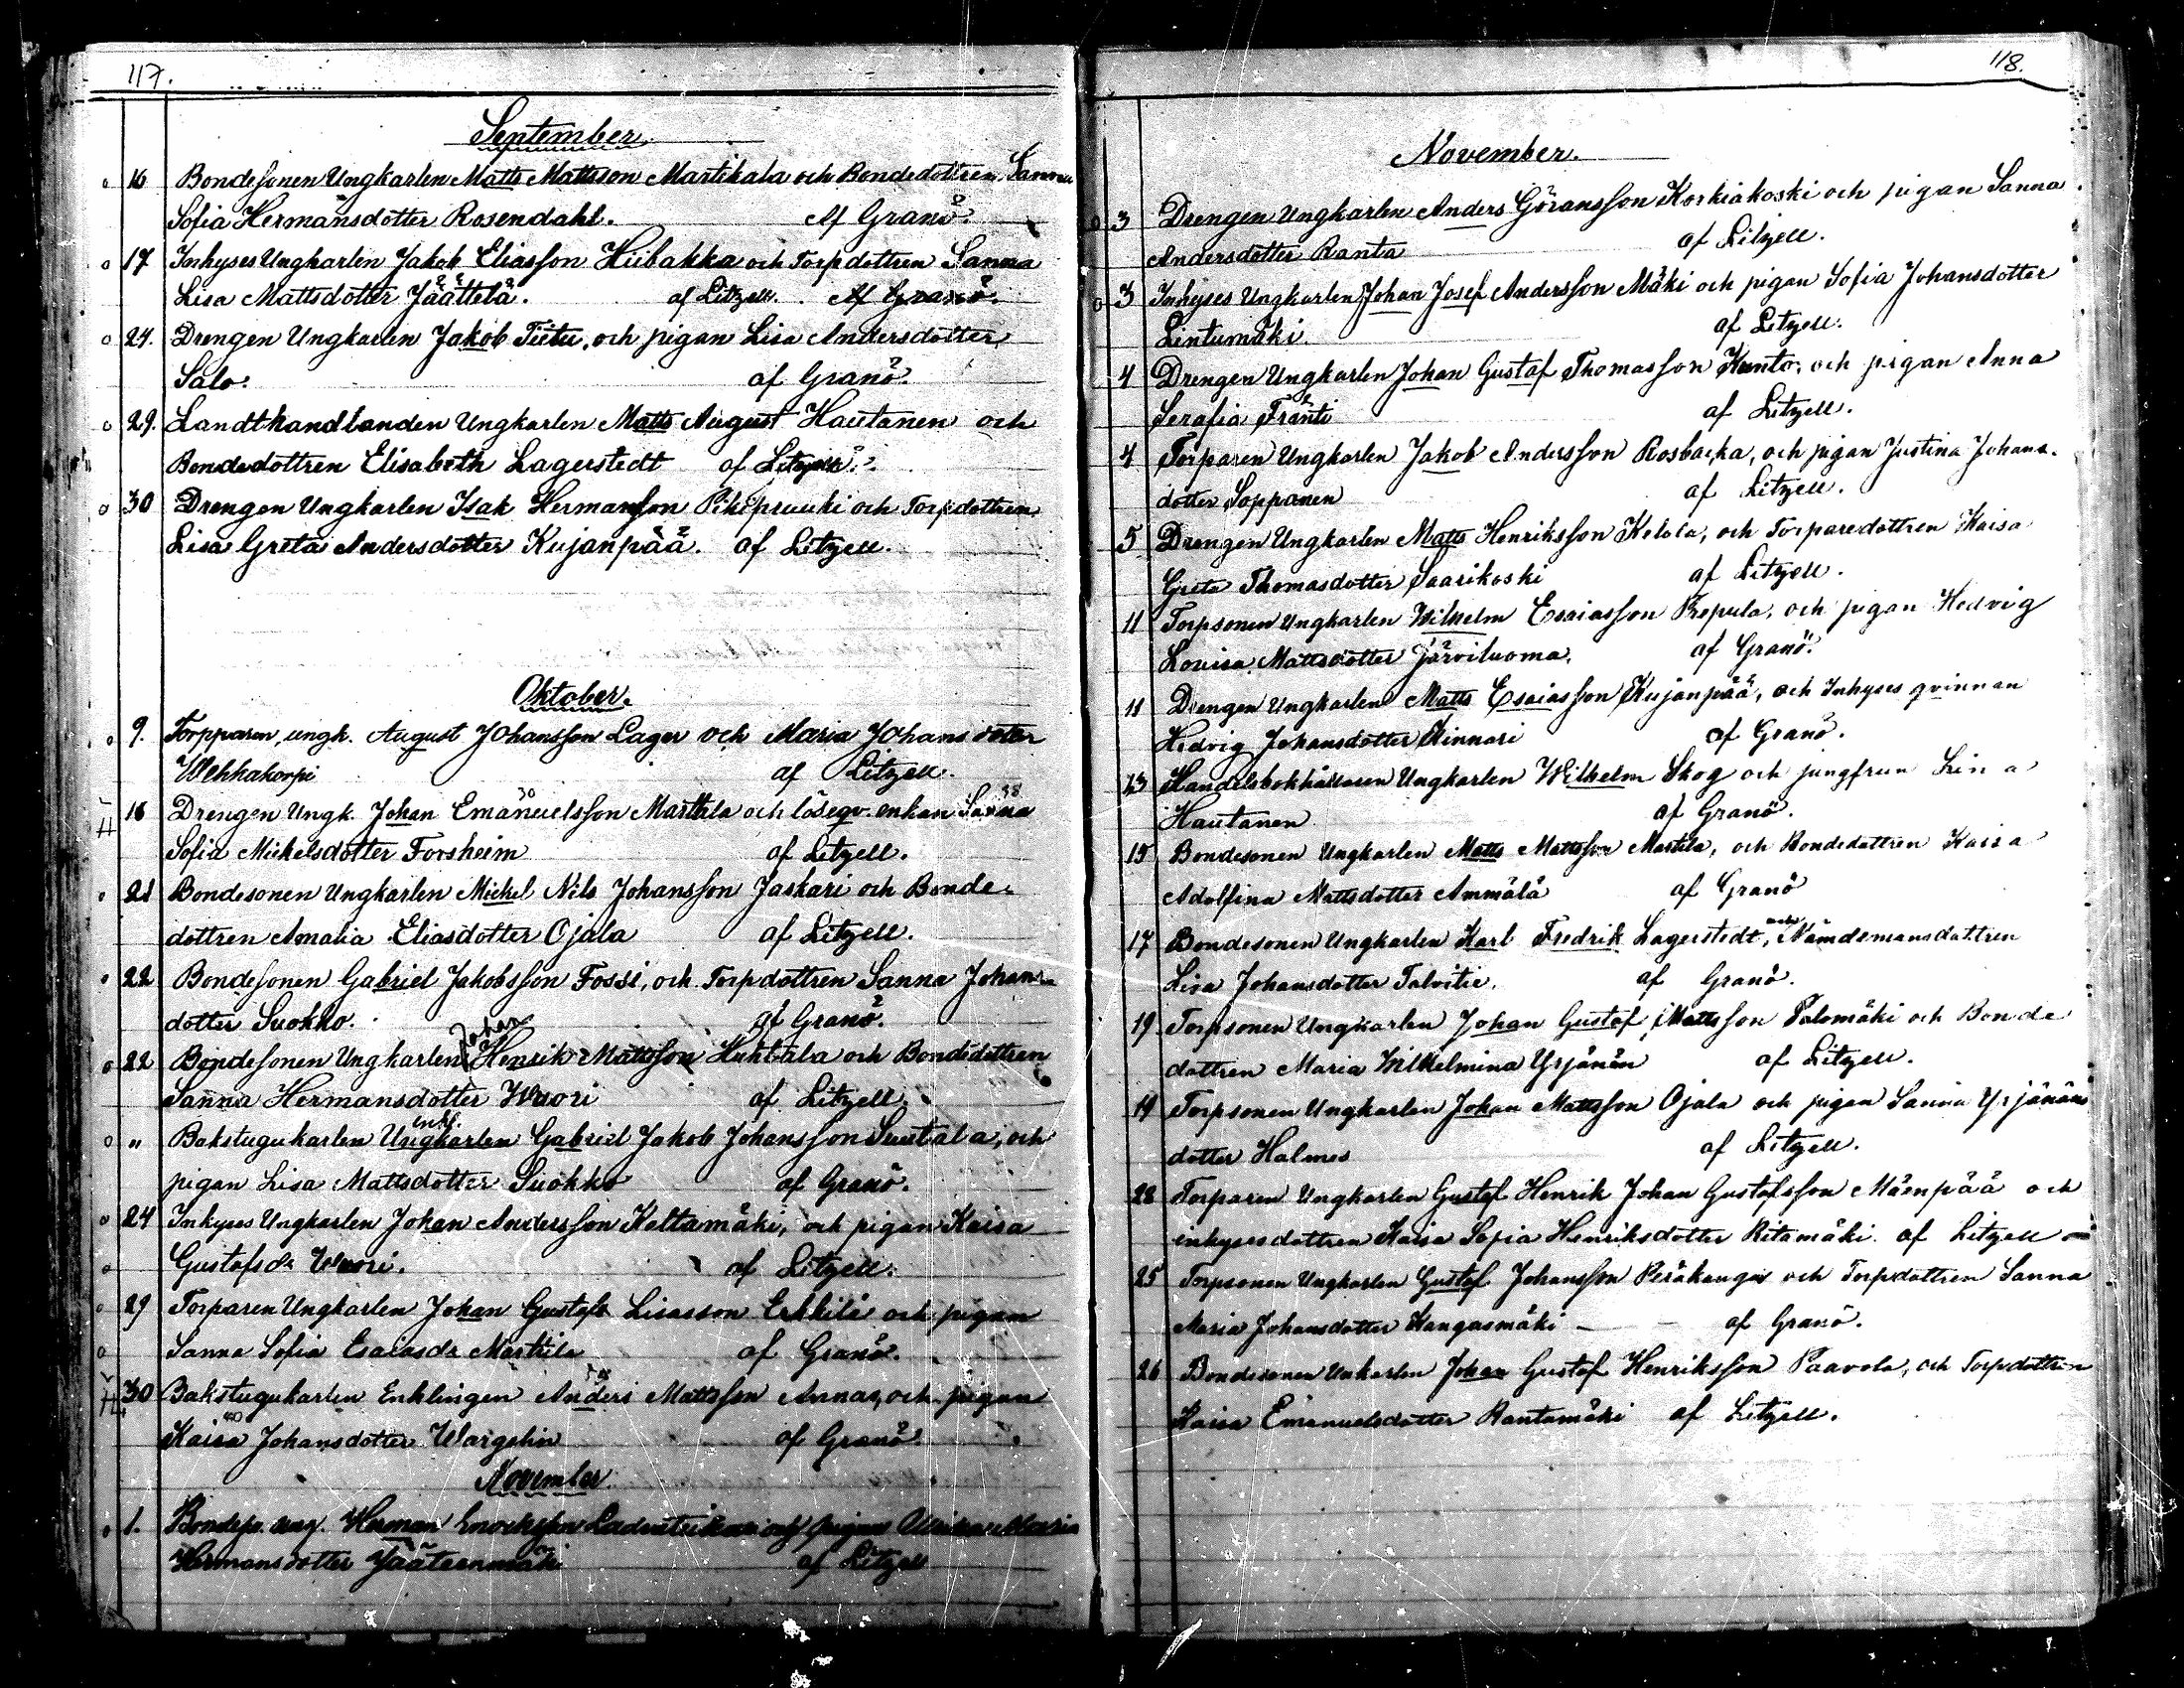 117.
September.
16 Bondesonen Ungkarlen Matts Mattsson Martikala och Bondedottren Sanna
Sofia Hermansdotter Rosendahl. Af Granö.
17 Inhyses Ungkarlen Jakob Eliasson Hiibakka och Torpdottren Sanna
Lisa Mattsdotter Jäättelä. af Litzell. Af Granö.
24. Drengen Ungkarlen Jakob Tiitu, och pigan Lisa Andersdotter
Salo. af Granö.
29. Landthandlanden Ungkarlen Matts August Hautanen och
Bondedottren Elisabeth Lagerstedt af Litzell.
30 Drengen Ungkarlen Isak Hermansson Pikipruuki och Torpdottren
Lisa Greta Andersdotter Kujanpää. af Litzell.
Oktober.
9. Torpparen, ungk. August Johansson Lager och Maria Johansdoter
Wehkakorpi af Litzell.
16 Drengen Ungk. Johan Emanuelsson Marttala och löseqv. enkan Sanna
Sofia Mickelsdotter Forsheim af Litzell.
21 Bondesonen Ungkarlen Mickel Nils Johansson Jaskari och Bonde-
dottren Amalia Eliasdotter Ojala af Litzell.
22 Bondesonen Gabriel Jakobsson Fossi, och Torpdottren Sanna Johans
dotter Suokko. af Granö.
22 Bondesonen Ungkarlen Johan Henrik Mattsson Huhtala och Bondedottren
Sanna Hermansdotter Wuori af Litzell.
" Bakstugukarlen Ungkarlen enkl. Gabriel Jakob Johansson Suutala, och
pigan Lisa Mattsdotter Suokko af Granö.
24 Inhyses Ungkarlen Johan Andersson Keltamäki, och pigan Kaisa
Gustafsdr Wuori. af Litzell.
29 Torparen Ungkarlen Johan Gustaf Lisasson Erkkilä och pigan
Sanna Sofia Esaiasdr Marttila af Granö.
30 Bakstugukarlen Enklingen Anders Mattsson Annas, och pigan
Kaisa Johansdotter Wargelin af Granö.
November
1. Bondeso. ung. Herman och pigan Maria
Hermansdotter Jääteenmäki af Litzell
118.
November.
3 Drengen Ungkarlen Anders Göransson Korkiakoski och pigan Sanna
Andersdotter Ranta af Litzell.
3 Inhyses Ungkarlen Johan Josef Andersson Mäki och pigan Sofia Johansdotter
Lintumäki. af Litzell.
4 Drengen Ungkarlen Johan Gustaf Thomasson Kunto, och pigan Anna
Serafia Fränti af Litzell.
4 Torparen Ungkarlen Jakob Andersson Rosbacka, och pigan Justina Johans-
dotter Soppanen af Litzell.
5 Drengen Ungkarlen Matts Henriksson Ketola, och Torparedottren Kaisa
Greta Thomasdotter Saarikoski af Litzell.
11 Torpsonen Ungkarlen Wilhelm Esaiasson Prepula, och pigan Hedvig
Lovisa Mattsdotter Järviluoma, af Granö.
11 Drengen Ungkarlen Matts Esaiasson Kujanpää, och Inhyses qvinnan
Hedvig Johansdotter Kinnari af Granö.
13 Handelsbokhållaren Ungkarlen Wilhelm Skog och jungfrun Lina
Hautanen af Granö.
15 Bondesonen Ungkarlen Matts Mattsson Martila, och Bondedottren Kaisa
Adolfina Mattsdotter Ammälä af Granö
17 Bondesonen Ungkarlen Karl Fredrik Lagerstedt, och Nämdemansdottren
Lisa Johansdotter Talvitie. af Granö.
19 Torpsonen Ungkarlen Johan Gustaf Mattsson Palomäki och Bonde
dottren Maria Wilhelmina Yrjänän af Litzell.
19 Torpsonen Ungkarlen Johan Mattsson Ojala och pigan Sanna Yrjänäns
dotter Holmes af Litzell.
28 Torparen Ungkarlen Gustaf Henrik Johan Gustafsson Mäenpää och
inhysesdottren Kaisa Sofia Henriksdotter Ritamäki af Litzell
25 Torpsonen Ungkarlen Gustaf Johansson Peräkangas och Torpdottren Sanna
Maria Johansdotter Kangasmäki af Granö.
26 Bondesonen Unkarlen Johan Gustaf Henriksson Paavola, och Torpdottren
Kaisa Emanuelsdotter Rantamäki af Litzell.